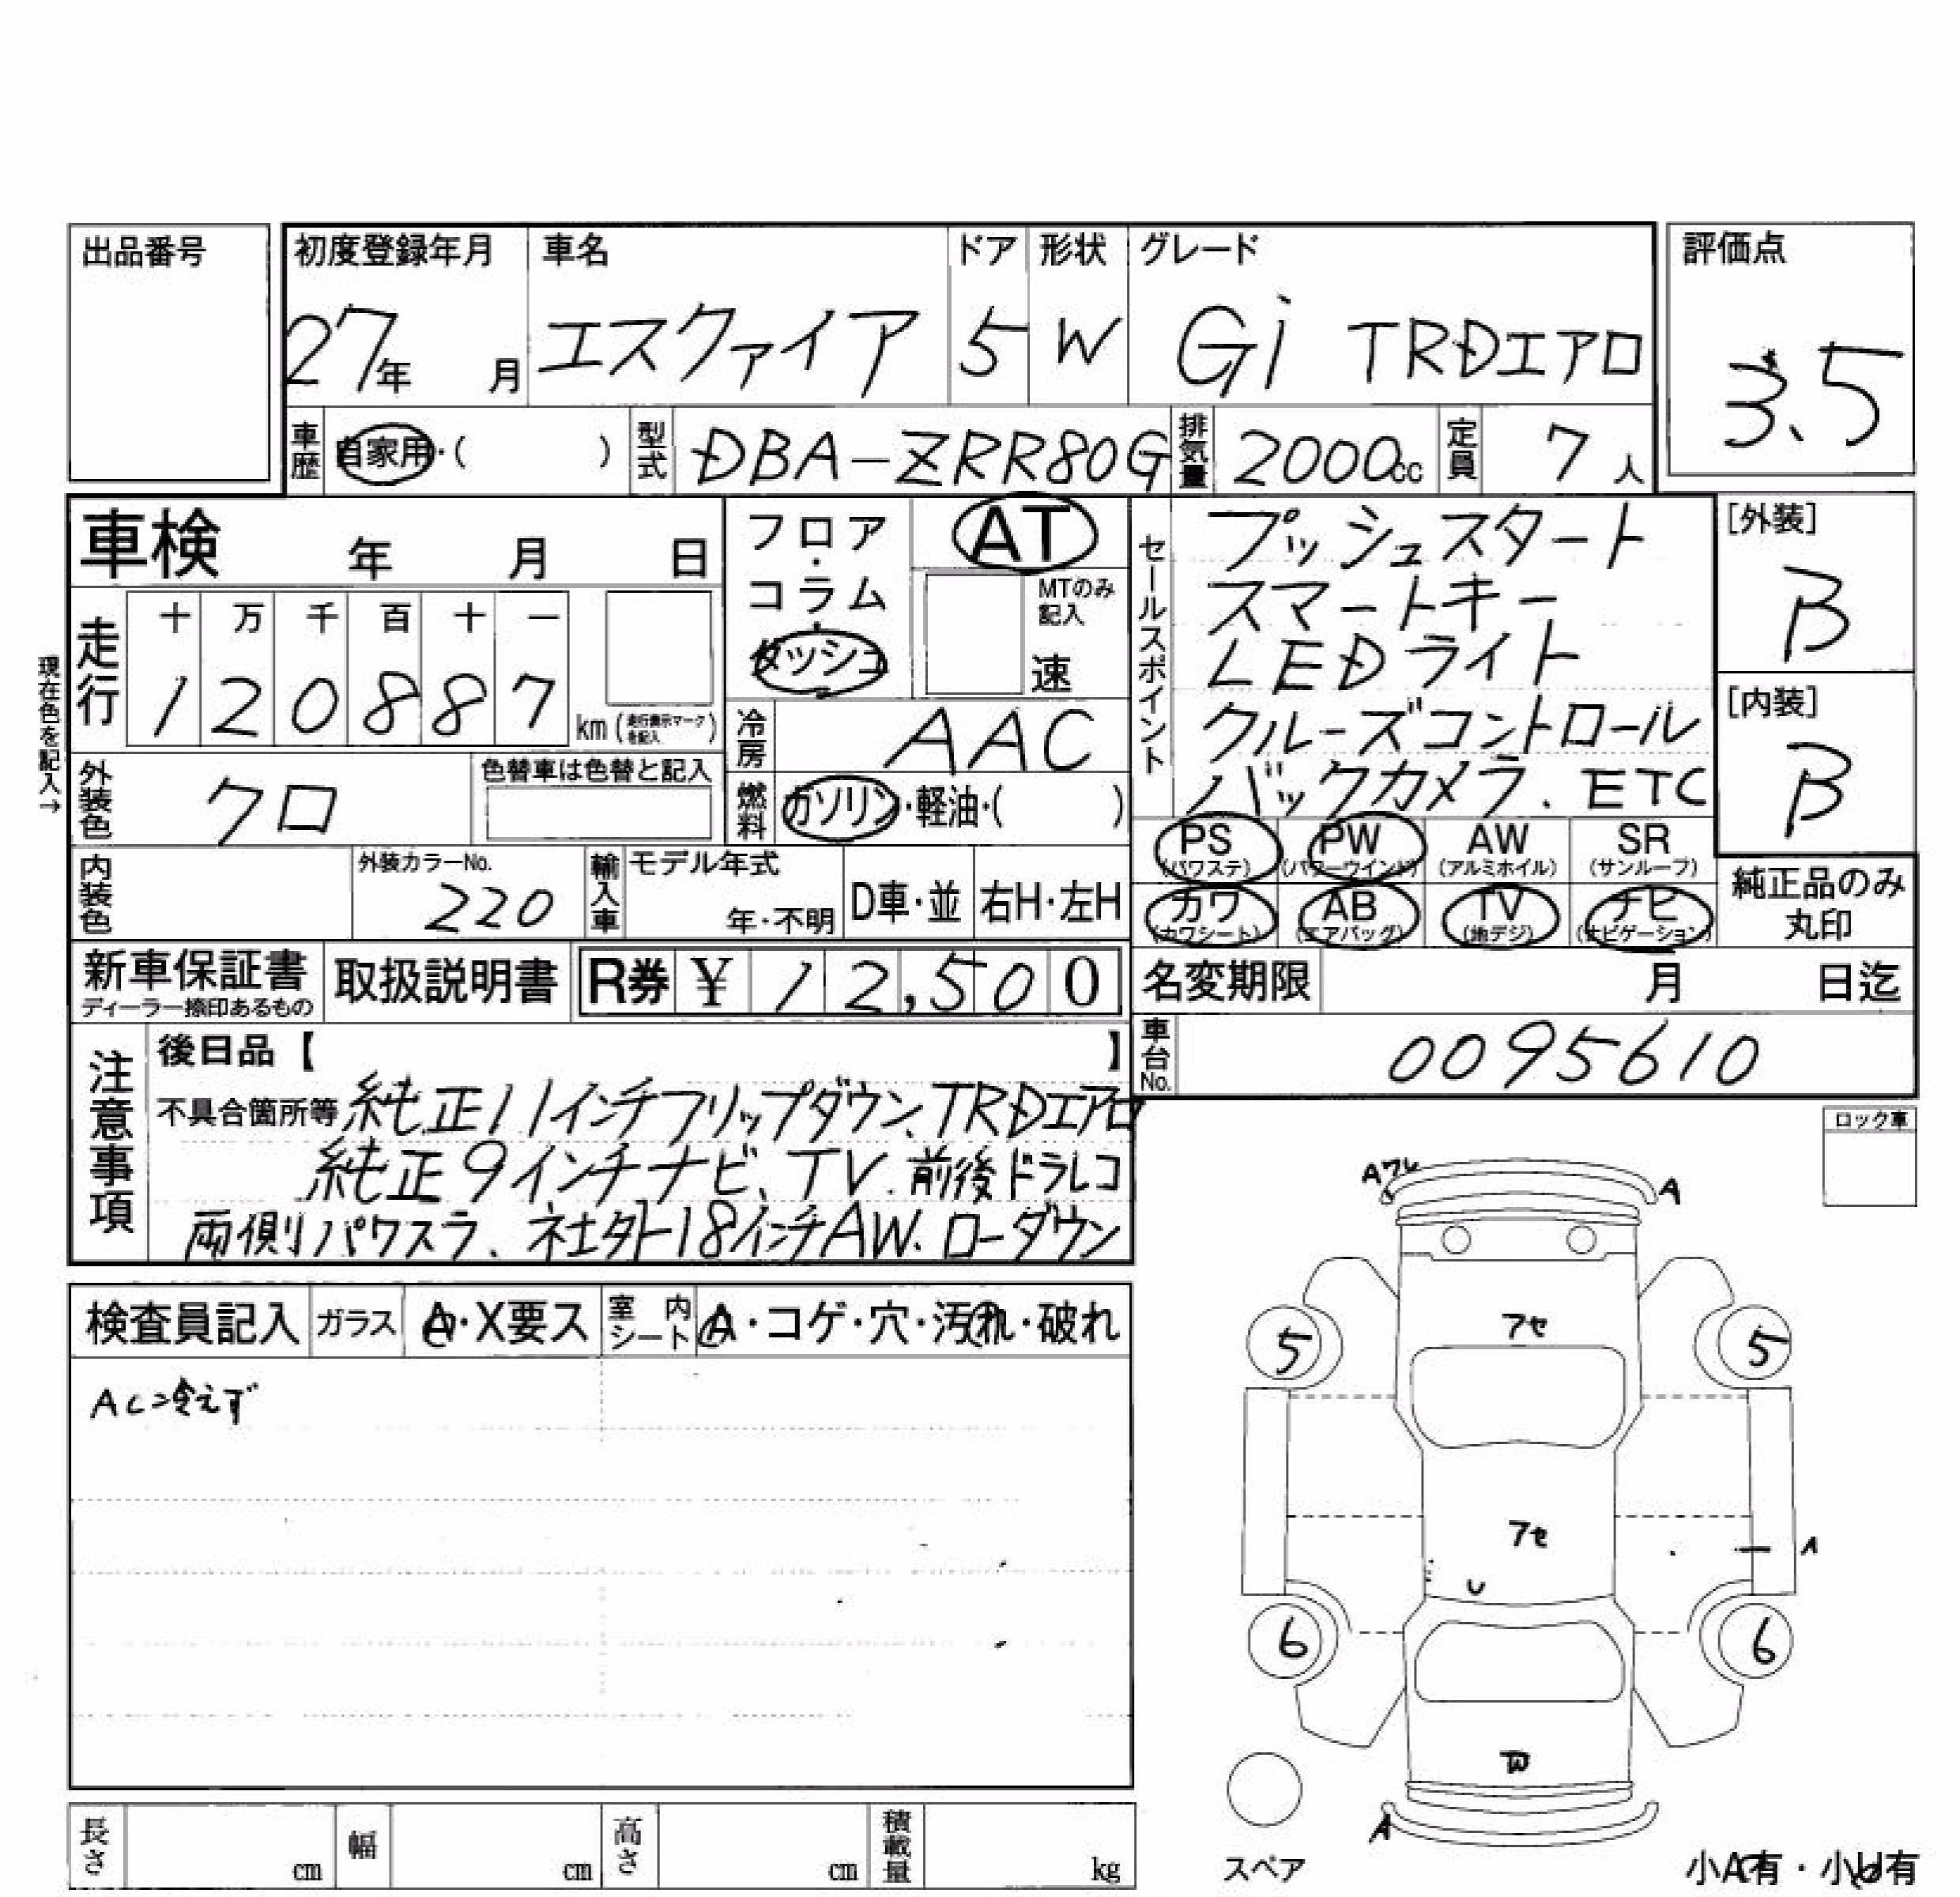 出品番号
初度登録年月 車名 ドア 形状 グレード 評価点
27年 月 エスクァイア 5 W Gi TRDエアロ 3.5
車歴 自家用・( ) 型式 DBA-ZRR80G 排気量 2000cc 定員 7人
車検 年 月 日
フロア・コラム・ダッシュ
AT
MTのみ記入
速
現在色を記入→
走行 十 万 千 百 十 一
1 2 0 8 8 7 km (走行表示マークを記入)
冷房 AAC
外装色 クロ 色替車は色替と記入
燃料 ガソリン・軽油・( )
内装色 外装カラーNo. 220
輸入車 モデル年式 年・不明 D車・並 右H・左H
新車保証書 ディーラー捺印あるもの 取扱説明書 R券 ¥ 12,500
セールスポイント
プッシュスタート
スマートキー
LEDライト
クルーズコントロール
バックカメラ、ETC
[外装]
B
[内装]
B
PS (パワステ) PW (パワーウインド) AW (アルミホイル) SR (サンルーフ)
カワ (カワシート) AB (エアバッグ) TV (地デジ) ナビ (ナビゲーション)
純正品のみ
丸印
名変期限 月 日迄
車台No. 0095610
注意事項
後日品【 】
不具合箇所等 純正11インチフリップダウン、TRDエアロ
純正9インチナビ、TV、前後ドラレコ
両側パワスラ、社外18インチAW、ローダウン
ロック車
検査員記入 ガラス A・X要ス 室内シート A・コゲ・穴・汚れ・破れ
AC冷えず
Aワレ A
アセ
5 5
アセ
A
U
6 6
W
A
スペア
小A有・小U有
長さ cm 幅 cm 高さ cm 積載量 kg